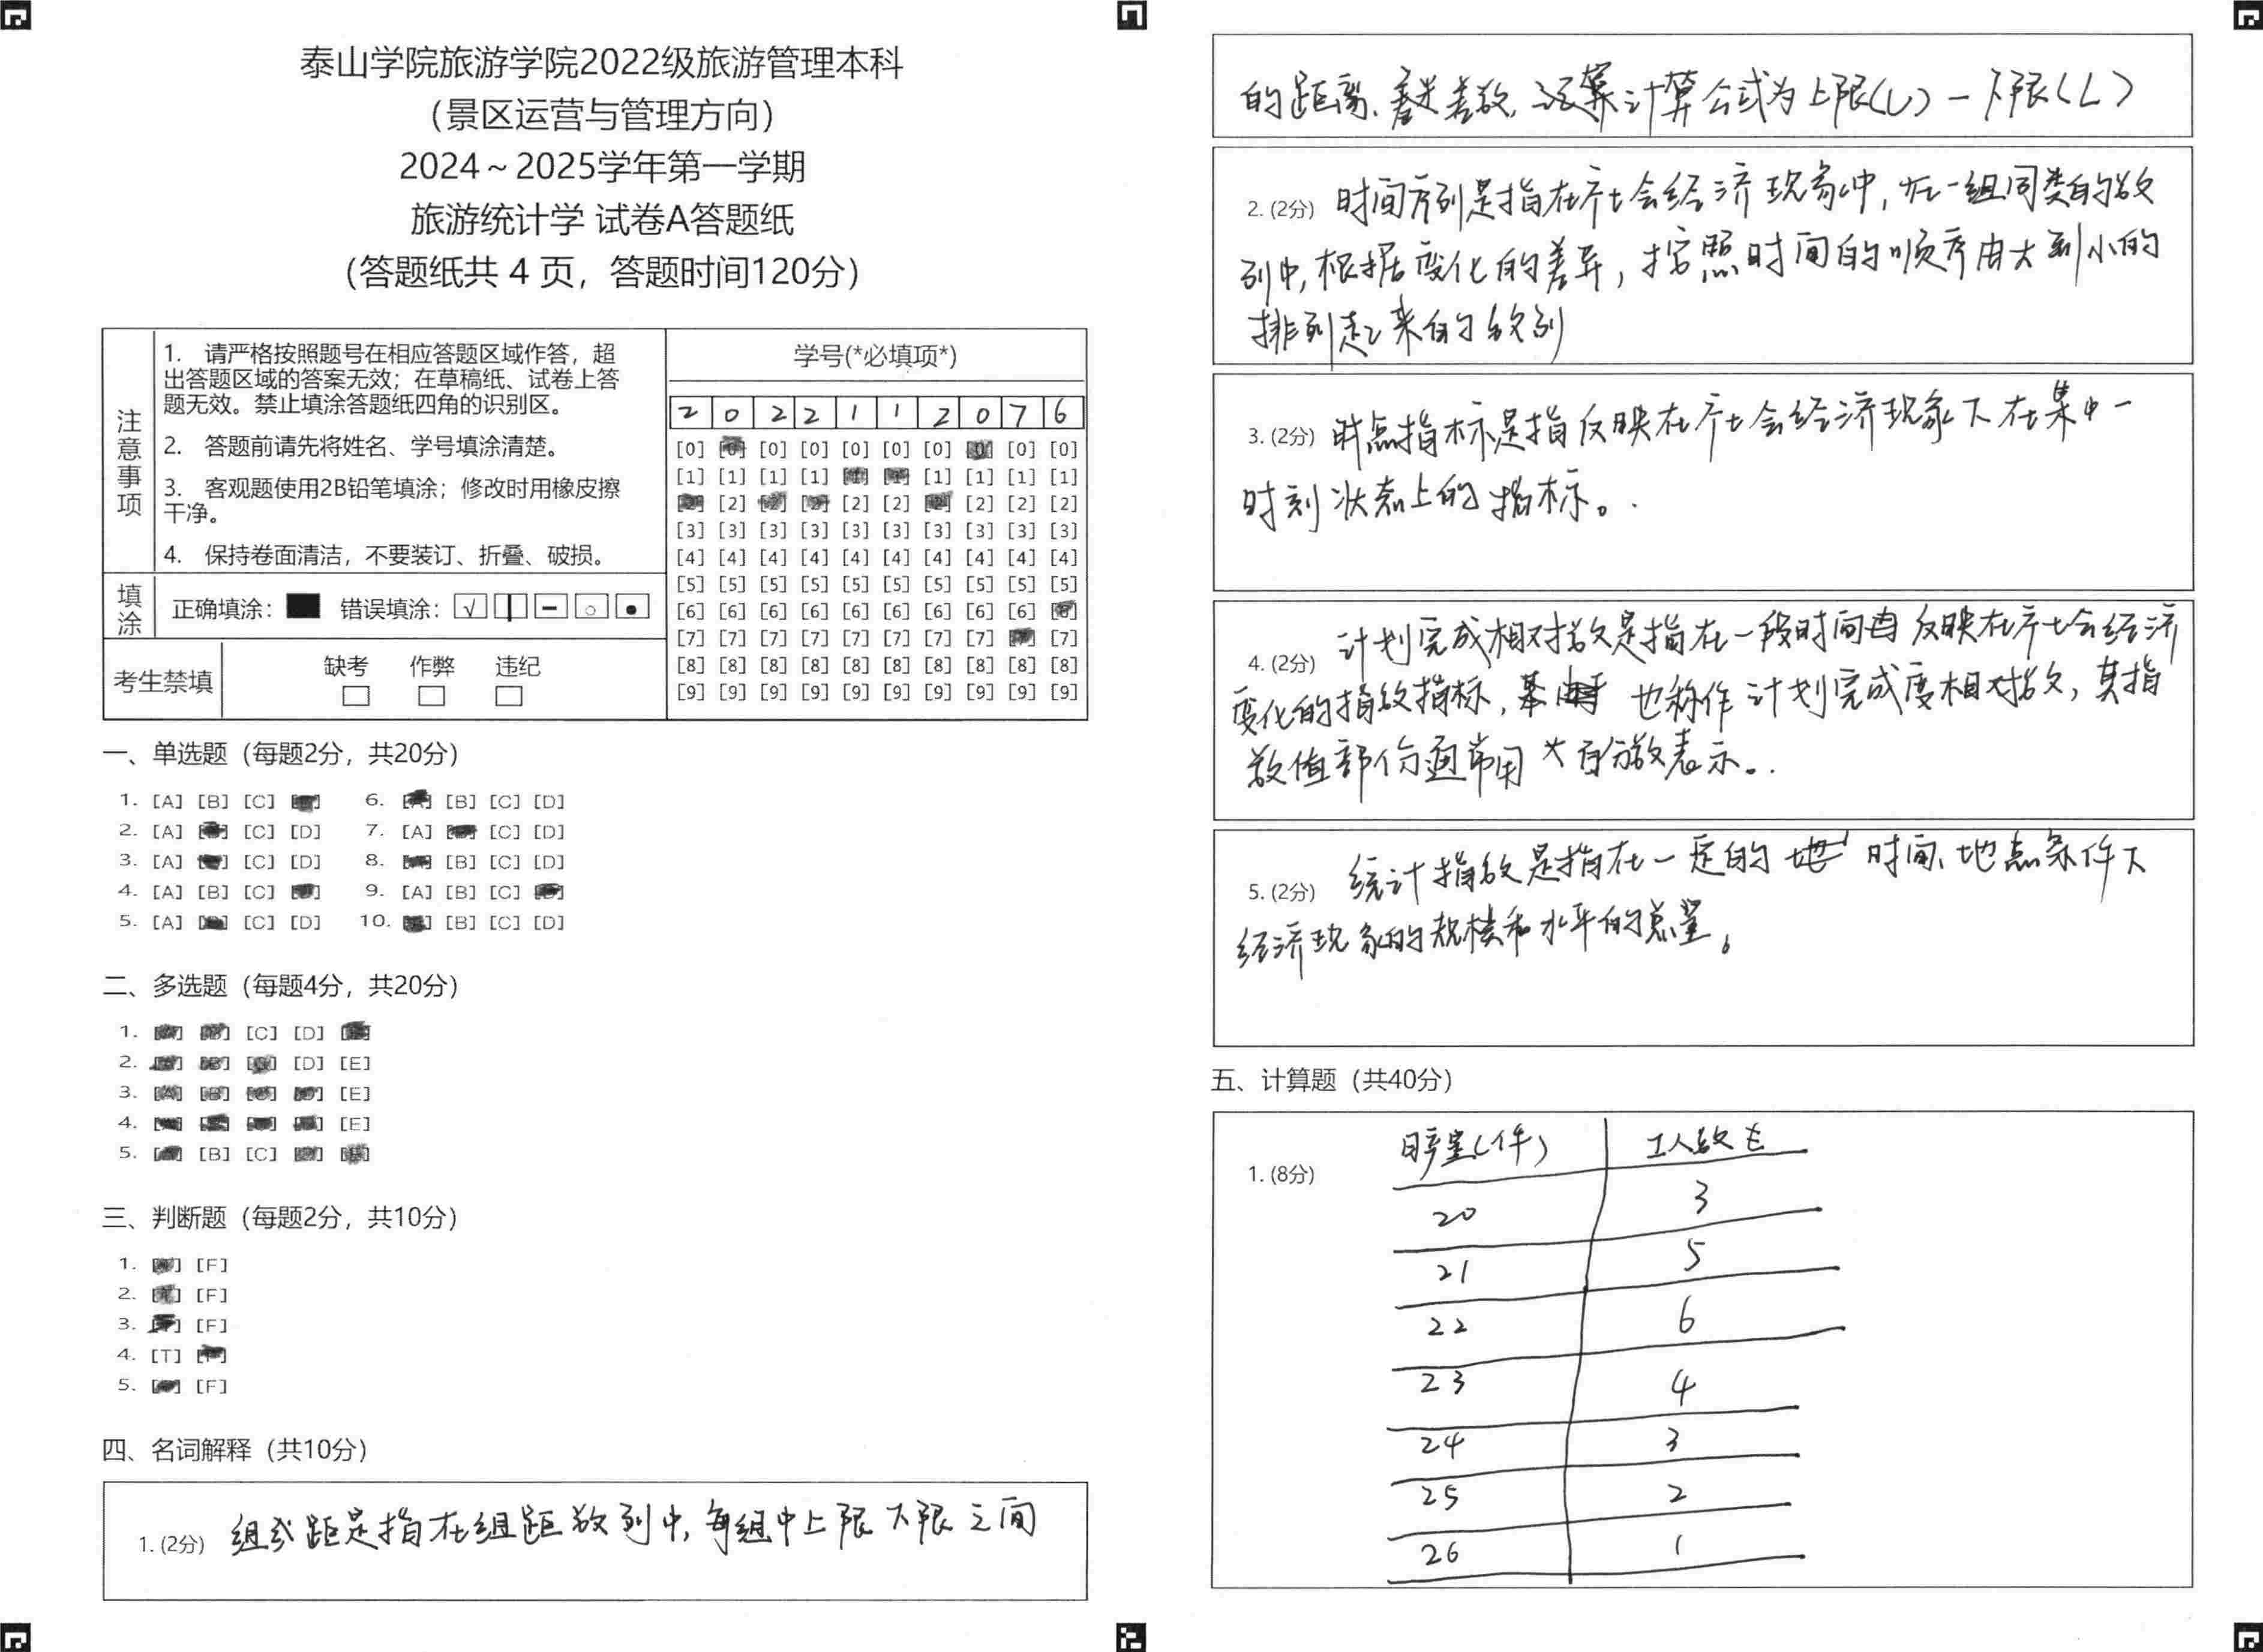 泰山学院旅游学院2022级旅游管理本科
（景区运营与管理方向）
2024～2025学年第一学期
旅游统计学 试卷A答题纸
（答题纸共 4 页，答题时间120分）
注意事项
1. 请严格按照题号在相应答题区域作答，超
出答题区域的答案无效；在草稿纸、试卷上答
题无效。禁止填涂答题纸四角的识别区。
2. 答题前请先将姓名、学号填涂清楚。
3. 客观题使用2B铅笔填涂；修改时用橡皮擦
干净。
4. 保持卷面清洁，不要装订、折叠、破损。
填涂
正确填涂： 错误填涂：
考生禁填
缺考 作弊 违纪
学号(*必填项*)
2 0 2 2 1 1 2 0 7 6
[0] [0] [0] [0] [0] [0] [0] [0] [0]
[1] [1] [1] [1] [1] [1] [1] [1]
[2] [2] [2] [2] [2] [2]
[3] [3] [3] [3] [3] [3] [3] [3] [3] [3]
[4] [4] [4] [4] [4] [4] [4] [4] [4] [4]
[5] [5] [5] [5] [5] [5] [5] [5] [5] [5]
[6] [6] [6] [6] [6] [6] [6] [6] [6]
[7] [7] [7] [7] [7] [7] [7] [7] [7]
[8] [8] [8] [8] [8] [8] [8] [8] [8] [8]
[9] [9] [9] [9] [9] [9] [9] [9] [9] [9]
一、单选题（每题2分，共20分）
1. [A] [B] [C] 6. [B] [C] [D]
2. [A] [C] [D] 7. [A] [C] [D]
3. [A] [C] [D] 8. [B] [C] [D]
4. [A] [B] [C] 9. [A] [B] [C]
5. [A] [C] [D] 10. [B] [C] [D]
二、多选题（每题4分，共20分）
1. [C] [D]
2. [D] [E]
3. [E]
4. [E]
5. [B] [C]
三、判断题（每题2分，共10分）
1. [F]
2. [F]
3. [F]
4. [T]
5. [F]
四、名词解释（共10分）
1. (2分) 组距是指在组距数列中,每组中上限下限之间
的距离、差数,计算公式为上限(U)－下限(L)
2. (2分) 时间序列是指在社会经济现象中,在一组同类的数
列中,根据变化的差异,按照时间的顺序由大到小的
排列起来的数列
3. (2分) 时点指标是指反映在社会经济现象下在某中一
时刻状态上的指标。
4. (2分) 计划完成相对数是指在一段时间内反映在社会经济
变化的指数指标, 也称作计划完成度相对数,其指
数值部分通常用百分数表示。
5. (2分) 统计指数是指在一定的时间、地点条件下
经济现象的规模和水平的总量。
五、计算题（共40分）
1. (8分)
日产量(件) 工人数
20 3
21 5
22 6
23 4
24 3
25 2
26 1